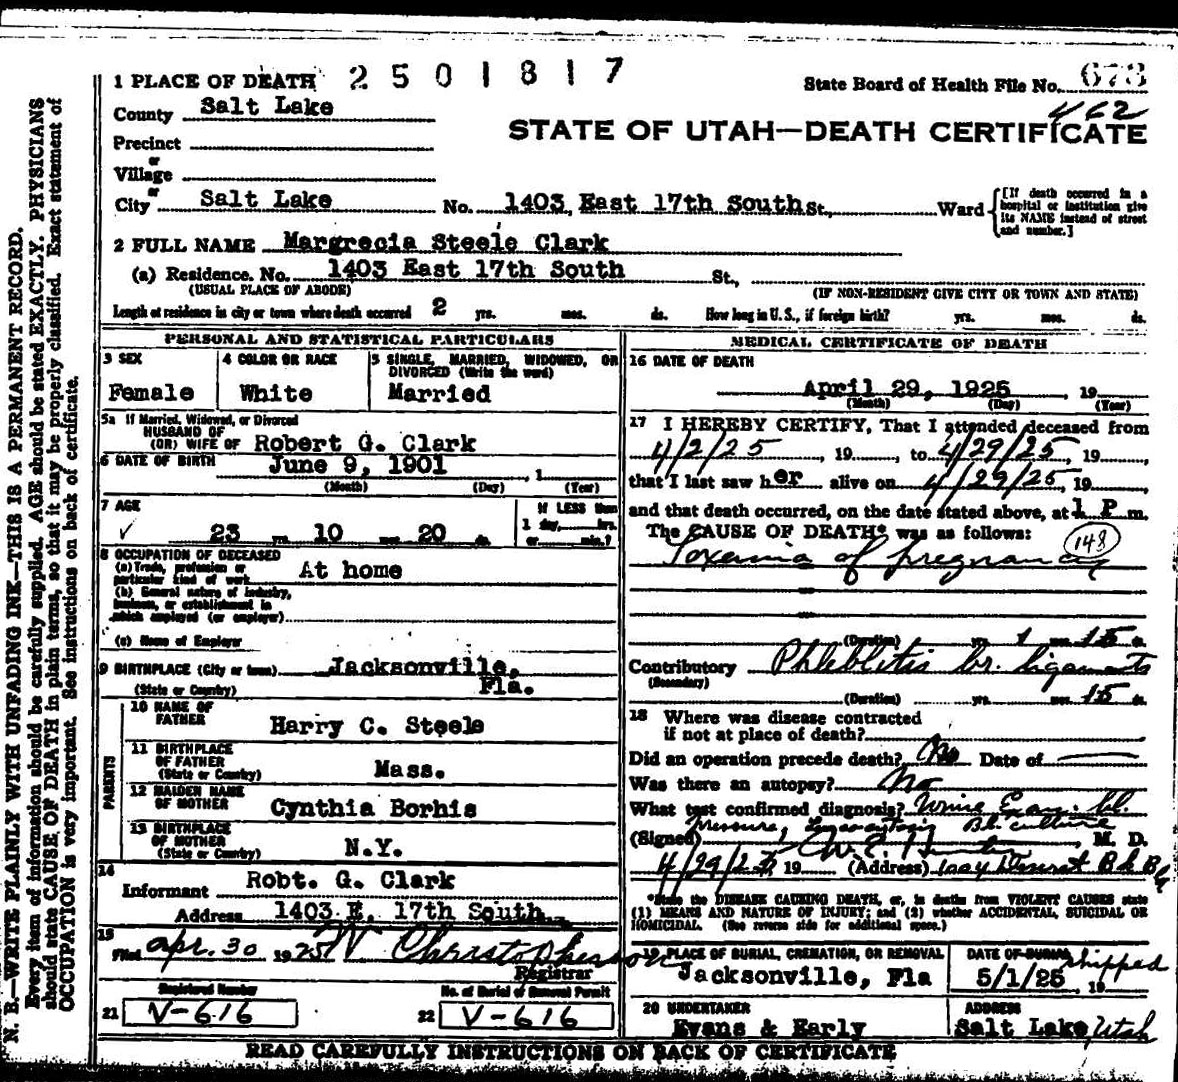 1 PLACE OF DEATH 2501817
State Board of Health File No. 673
462
County Salt Lake
STATE OF UTAH—DEATH CERTIFICATE
Precinct
or
Village
or
City Salt Lake No. 1403 East 17th South St., Ward [If death occurred in a hospital or institution give its NAME instead of street and number.]
2 FULL NAME Margrecia Steele Clark
(a) Residence. No. 1403 East 17th South St.,
(USUAL PLACE OF ABODE) (IF NON-RESIDENT GIVE CITY OR TOWN AND STATE)
Length of residence in city or town where death occurred 2 yrs. mos. ds. How long in U. S., if foreign birth? yrs. mos. ds.
PERSONAL AND STATISTICAL PARTICULARS
3 SEX 4 COLOR OR RACE 5 SINGLE, MARRIED, WIDOWED, OR
DIVORCED (Write the word)
Female White Married
5a If Married, Widowed, or Divorced
HUSBAND OF
(OR) WIFE OF Robert G. Clark
6 DATE OF BIRTH June 9, 1901 , 1
(Month) (Day) (Year)
7 AGE If LESS than
1 day, hrs.
✓ 23 yrs. 10 mos. 20 ds. or min.?
8 OCCUPATION OF DECEASED
(a) Trade, profession or
particular kind of work At home
(b) General nature of industry,
business, or establishment in
which employed (or employer)
(c) Name of Employer
9 BIRTHPLACE (City or town) Jacksonville,
(State or Country) Fla.
PARENTS
10 NAME OF
FATHER Harry C. Steele
11 BIRTHPLACE
OF FATHER
(State or Country) Mass.
12 MAIDEN NAME
OF MOTHER Cynthia Borhis
13 BIRTHPLACE
OF MOTHER
(State or Country) N.Y.
14
Informant Robt. G. Clark
Address 1403 E. 17th South
15
Filed Apr. 30 1925 W Christopherson
Registrar
Registered Number No. of Burial or Removal Permit
21 V-616 22 V-616
MEDICAL CERTIFICATE OF DEATH
16 DATE OF DEATH
April 29, 1925 , 19
(Month) (Day) (Year)
17 I HEREBY CERTIFY, That I attended deceased from
4/2/25 , 19 , to 4/29/25, 19 ,
that I last saw her alive on 4/29/25, 19 ,
and that death occurred, on the date stated above, at 1 P m.
The CAUSE OF DEATH* was as follows: 148
Toxemia of pregnancy
(Duration) yrs. 1 mos. 15 ds.
Contributory Phleblitis br. ligaments
(Secondary)
(Duration) yrs. mos. 15 ds.
18 Where was disease contracted
if not at place of death?
Did an operation precede death? No Date of
Was there an autopsy? No
What test confirmed diagnosis? Urine Exam. bl.
pressure, Bl. culture
(Signed) M. D.
4/29/25, 19 (Address)
*State the DISEASE CAUSING DEATH, or, in deaths from VIOLENT CAUSES state
(1) MEANS AND NATURE OF INJURY; and (2) whether ACCIDENTAL, SUICIDAL OR
HOMICIDAL. (See reverse side for additional space.)
19 PLACE OF BURIAL, CREMATION, OR REMOVAL DATE OF BURIAL shipped
Jacksonville, Fla 5/1/25 , 19
20 UNDERTAKER ADDRESS
Evans & Early Salt Lake, Utah
READ CAREFULLY INSTRUCTIONS ON BACK OF CERTIFICATE
N. B.—WRITE PLAINLY WITH UNFADING INK—THIS IS A PERMANENT RECORD.
Every item of information should be carefully supplied. AGE should be stated EXACTLY. PHYSICIANS
should state CAUSE OF DEATH in plain terms, so that it may be properly classified. Exact statement of
OCCUPATION is very important. See instructions on back of certificate.